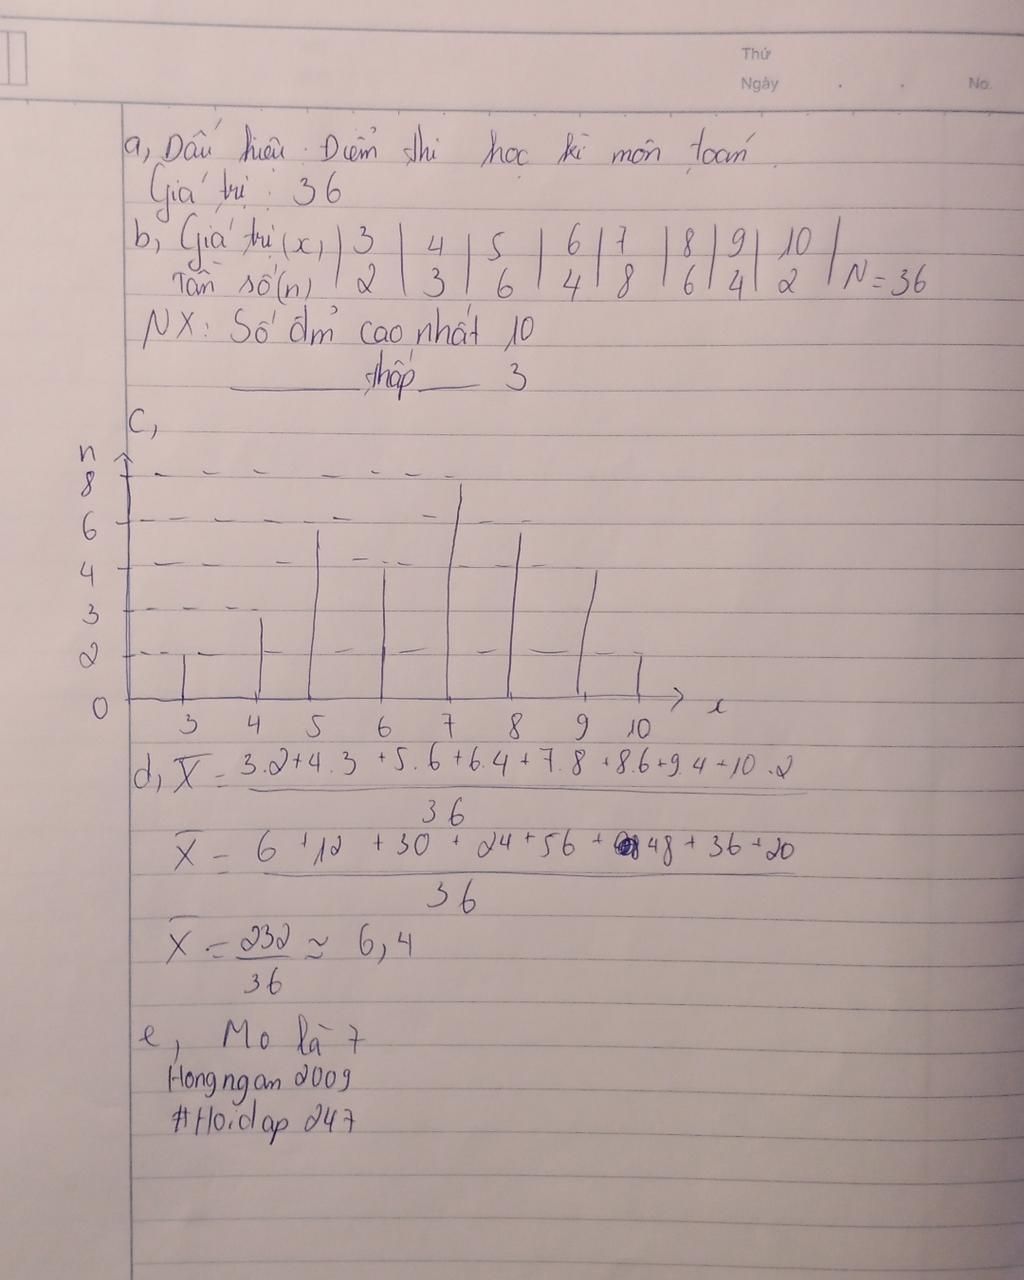 Thứ
Ngày . . No.
a, Dấu hiệu : Điểm thi học kì môn toán
Giá trị : 36
b, Giá trị (x) | 3 | 4 | 5 | 6 | 7 | 8 | 9 | 10 |
Tần số (n) | 2 | 3 | 6 | 4 | 8 | 6 | 4 | 2 | N = 36
NX: Số đm̉ cao nhất 10
thấp 3
c,
n
8
6
4
3
2
0
3 4 5 6 7 8 9 10 x
d, X̄ = 3.2+4.3+5.6+6.4+7.8+8.6+9.4+10.2
36
X̄ = 6 + 12 + 30 + 24 + 56 + 48 + 36 + 20
36
X̄ = 232 ≈ 6,4
36
e, Mo là 7
Hongngan 2009
#Hoidap 247